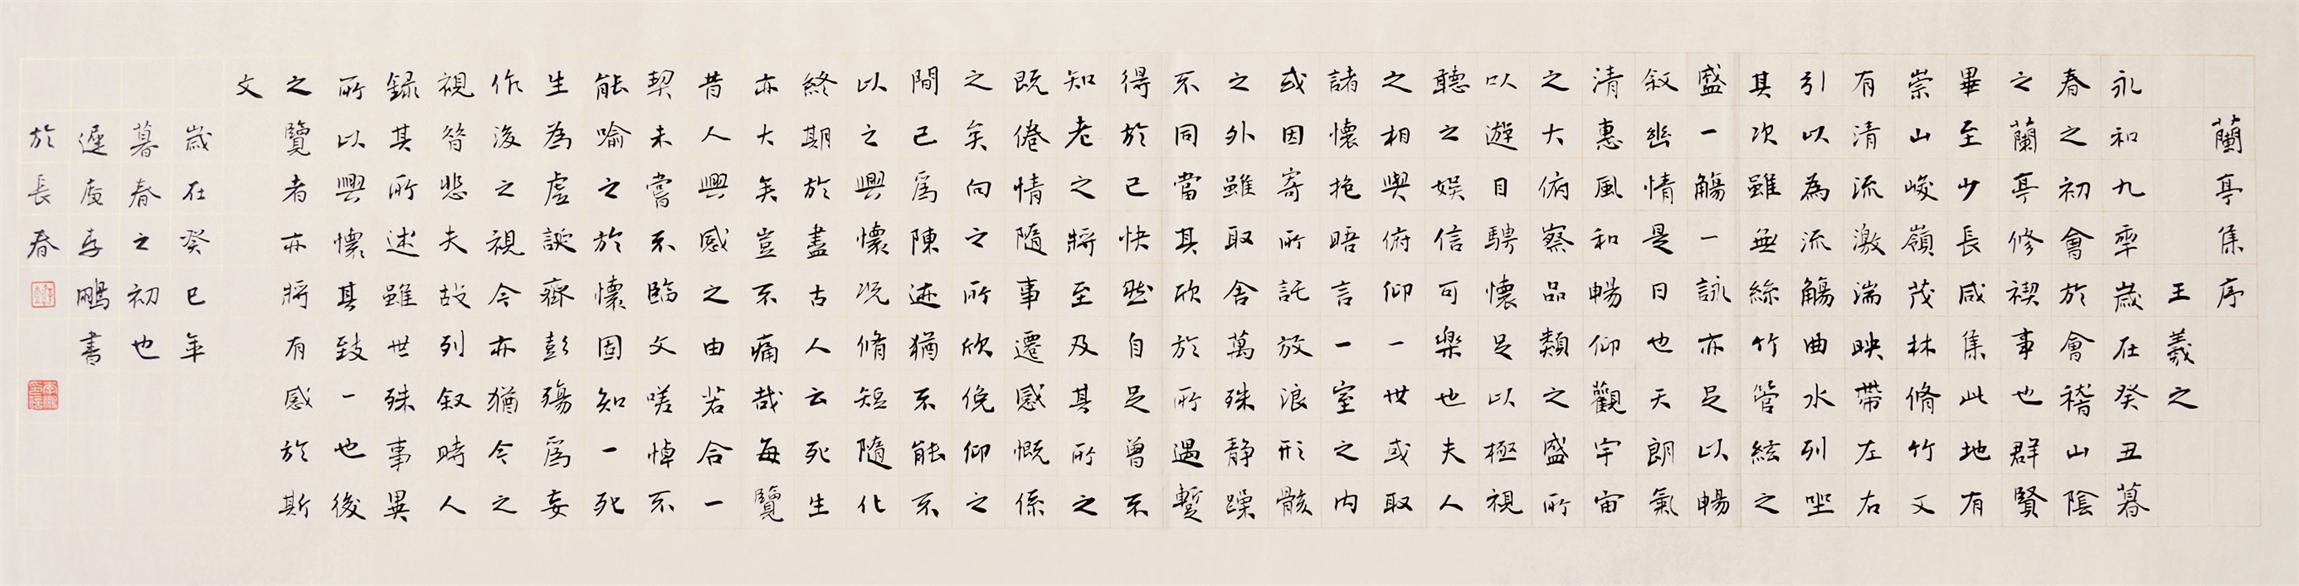 蘭亭集序
王羲之
永和九年歲在癸丑暮
春之初會於會稽山陰
之蘭亭修禊事也群賢
畢至少長咸集此地有
崇山峻嶺茂林脩竹又
有清流激湍映帶左右
引以為流觴曲水列坐
其次雖無絲竹管絃之
盛一觴一詠亦足以暢
敘幽情是日也天朗氣
清惠風和暢仰觀宇宙
之大俯察品類之盛所
以遊目騁懷足以極視
聽之娛信可樂也夫人
之相與俯仰一世或取
諸懷抱晤言一室之內
或因寄所託放浪形骸
之外雖取舍萬殊靜躁
不同當其欣於所遇暫
得於己快然自足曾不
知老之將至及其所之
既倦情隨事遷感慨係
之矣向之所欣俛仰之
間已爲陳迹猶不能不
以之興懷況脩短隨化
終期於盡古人云死生
亦大矣豈不痛哉每覽
昔人興感之由若合一
契未嘗不臨文嗟悼不
能喻之於懷固知一死
生為虛誕齊彭殤爲妄
作後之視今亦猶今之
視昔悲夫故列敘時人
錄其所述雖世殊事異
所以興懷其致一也後
之覽者亦將有感於斯
文
歲在癸巳年
暮春之初也
遲李鵬書
於長春